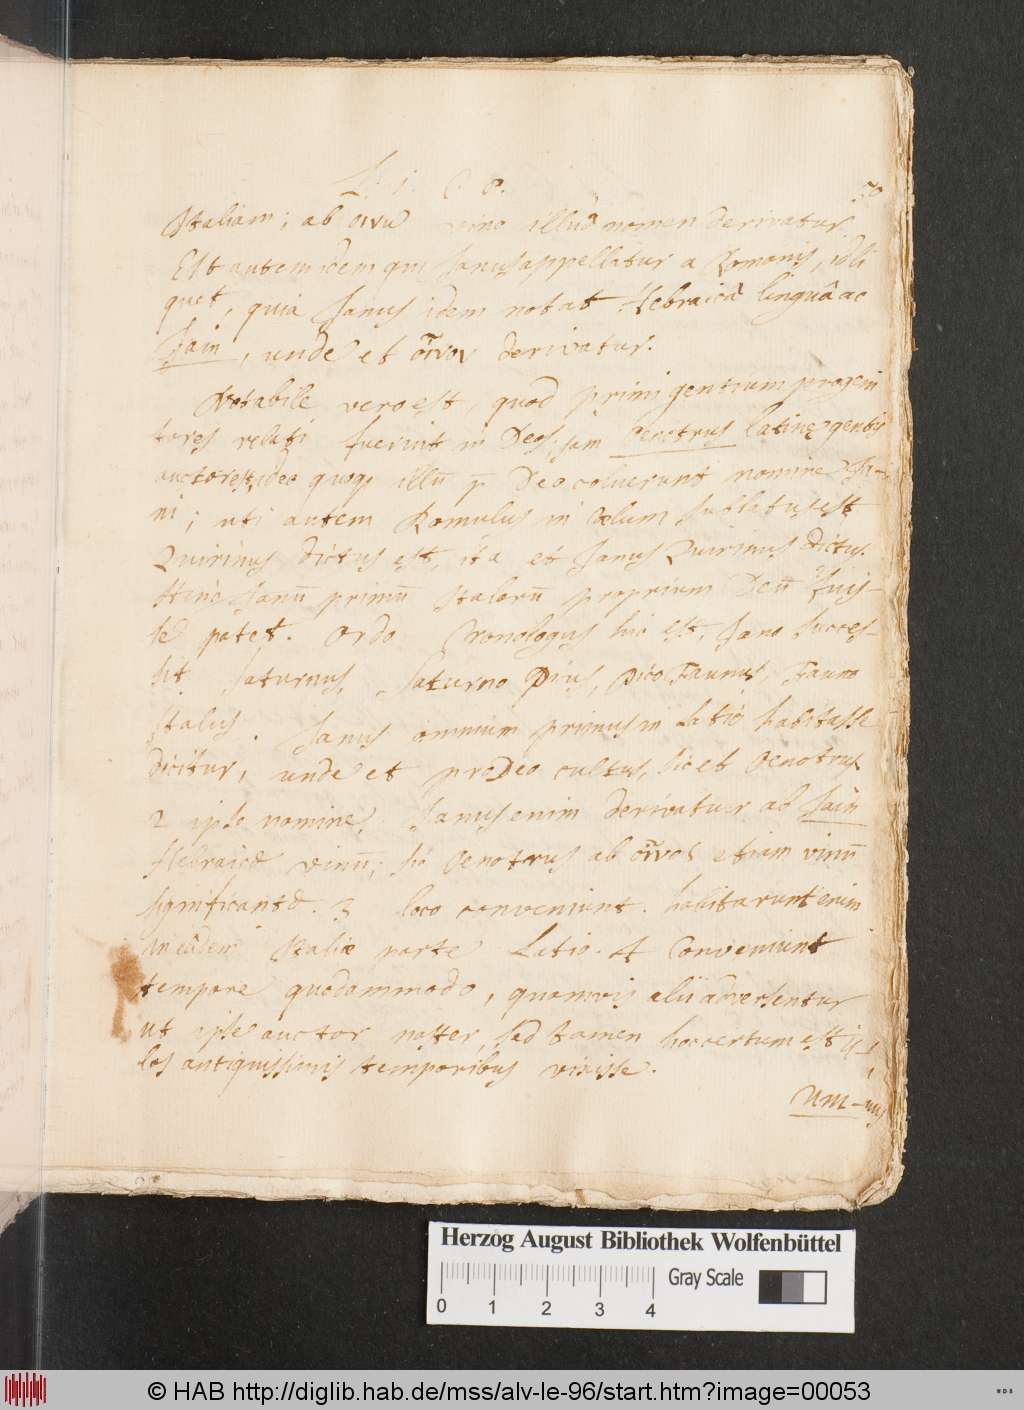 L. 1. C. 8.
50
Italiam; ab οινυ vino illud nomen derivatur
Est autem idem qui Janus appellatur a Romanis, id li
quet, quia Janus idem notat Hebraicâ linguâ ac
Jain, unde et οἶνον derivatur.
Notabile vero est, quod primi gentium progeni
tores relati fuerint in Deos, jam Oenotrus latinę gentis
auctor est, ideo quoqꝫ illū p Deo coluerunt nomine Ja-
ni; uti autem Romulus in Cœlum sublatus est
Quirinus dictus est, ita et Janus Quirinus dictus.
Hinc Janū primū Italorū proprium Deū fuis-
se patet. Ordo Cronologus hic est, Jano succes-
sit Saturnus, Saturno Picus, Pico Faunus, Fauno
Italus. Janus omnium primus in Latio habitasse
dicitur, unde et pro Deo cultus, sic et Oenotrus
2 ipso nomine, Janus enim derivatur ab Jain
Hebraice vinū; sic Oenotrus ab οἶνος etiam vinū
significante. 3 loco conveniunt. habitarunt enim
in eâdem Italiæ parte Latio. 4 Conveniunt
tempore quodammodo, quamvis alii adversentur
ut ipse auctor noster, sed tamen hoc certum est il-
los antiquissimis temporibus vixisse.
Herzog August Bibliothek Wolfenbüttel
Gray Scale
0 1 2 3 4
© HAB http://diglib.hab.de/mss/alv-le-96/start.htm?image=00053